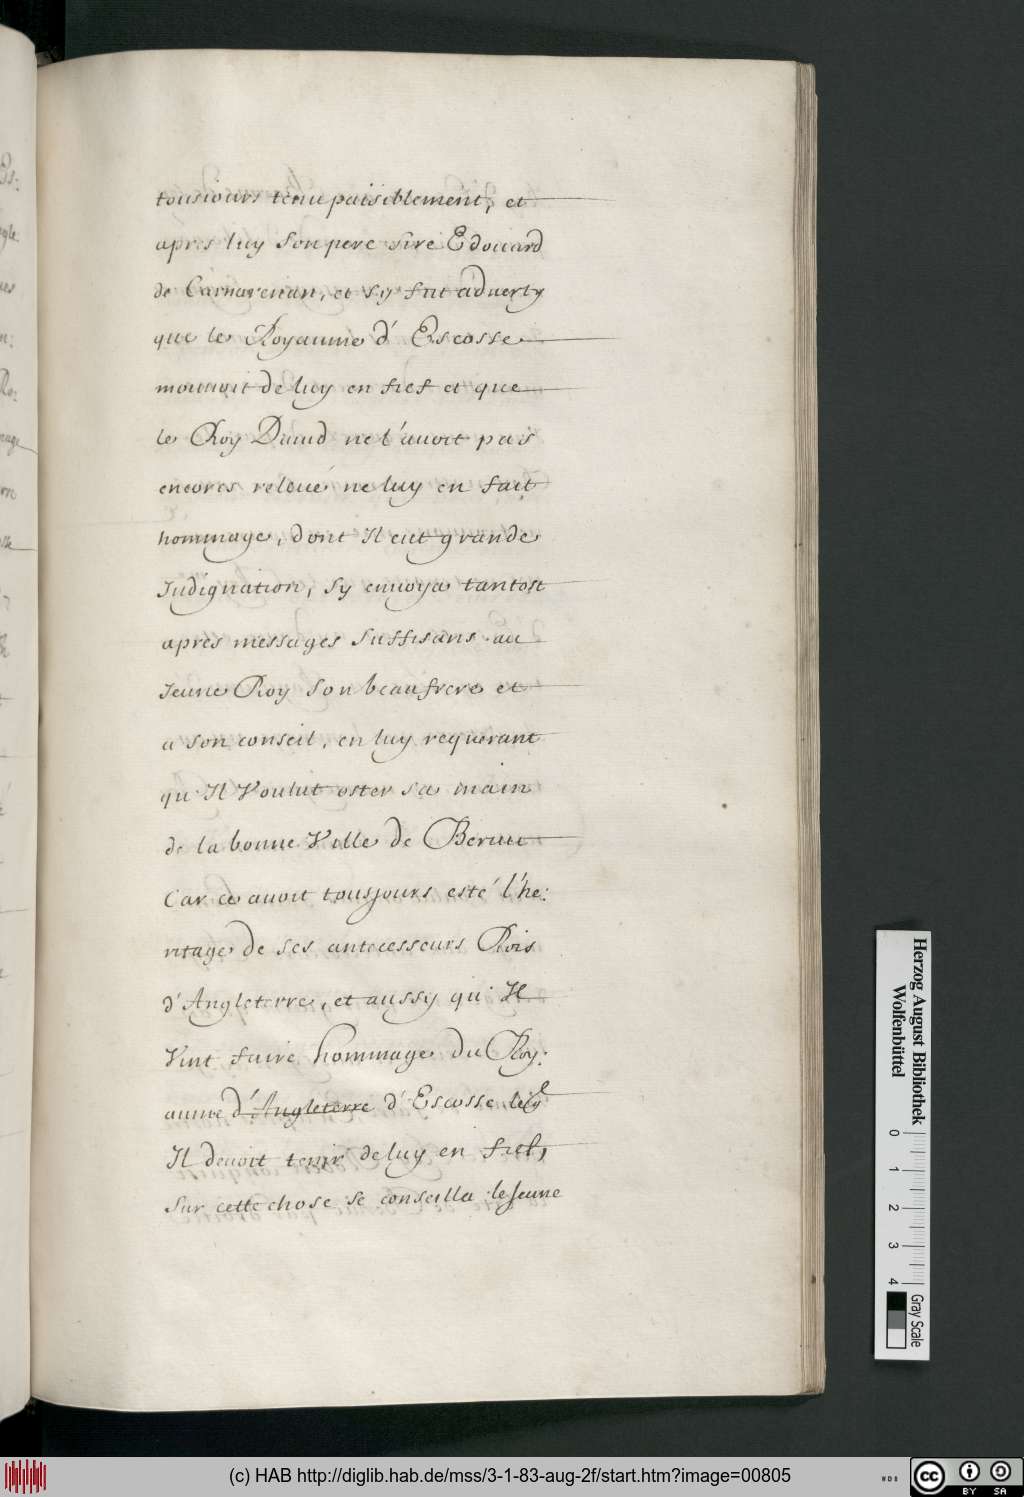 tousiours tenu paisiblement, et
apres luy son pere sire Edouard
de Carnarenan, et sy fut aduerty
que le Royaume d' Escosse
mouuoit de luy en fief et que
le Roy Dauid ne l'auoit pas
encores releué ne luy en fait
hommage, dont Il eut grande
Indignation, sy enuoya tantost
apres messages suffisans au
Jeune Roy son beaufrere et
a son conseil, en luy requerant
qu' Il Voulut oster sa main
de la bonne Ville de Beruic
Car ce auoit tousjours esté l'he:
ritage de ses antecesseurs Rois
d' Angleterre, et aussy qu' Il
Vint faire hommage du Roy:
aume d' Angleterre d' Escosse leql
Il deuoit tenir de luy en fief,
Sur cette chose se conseilla le Jeune
Herzog August Bibliothek
Wolfenbüttel
0 1 2 3 4
Gray Scale
(c) HAB http://diglib.hab.de/mss/3-1-83-aug-2f/start.htm?image=00805
WDB
cc BY SA